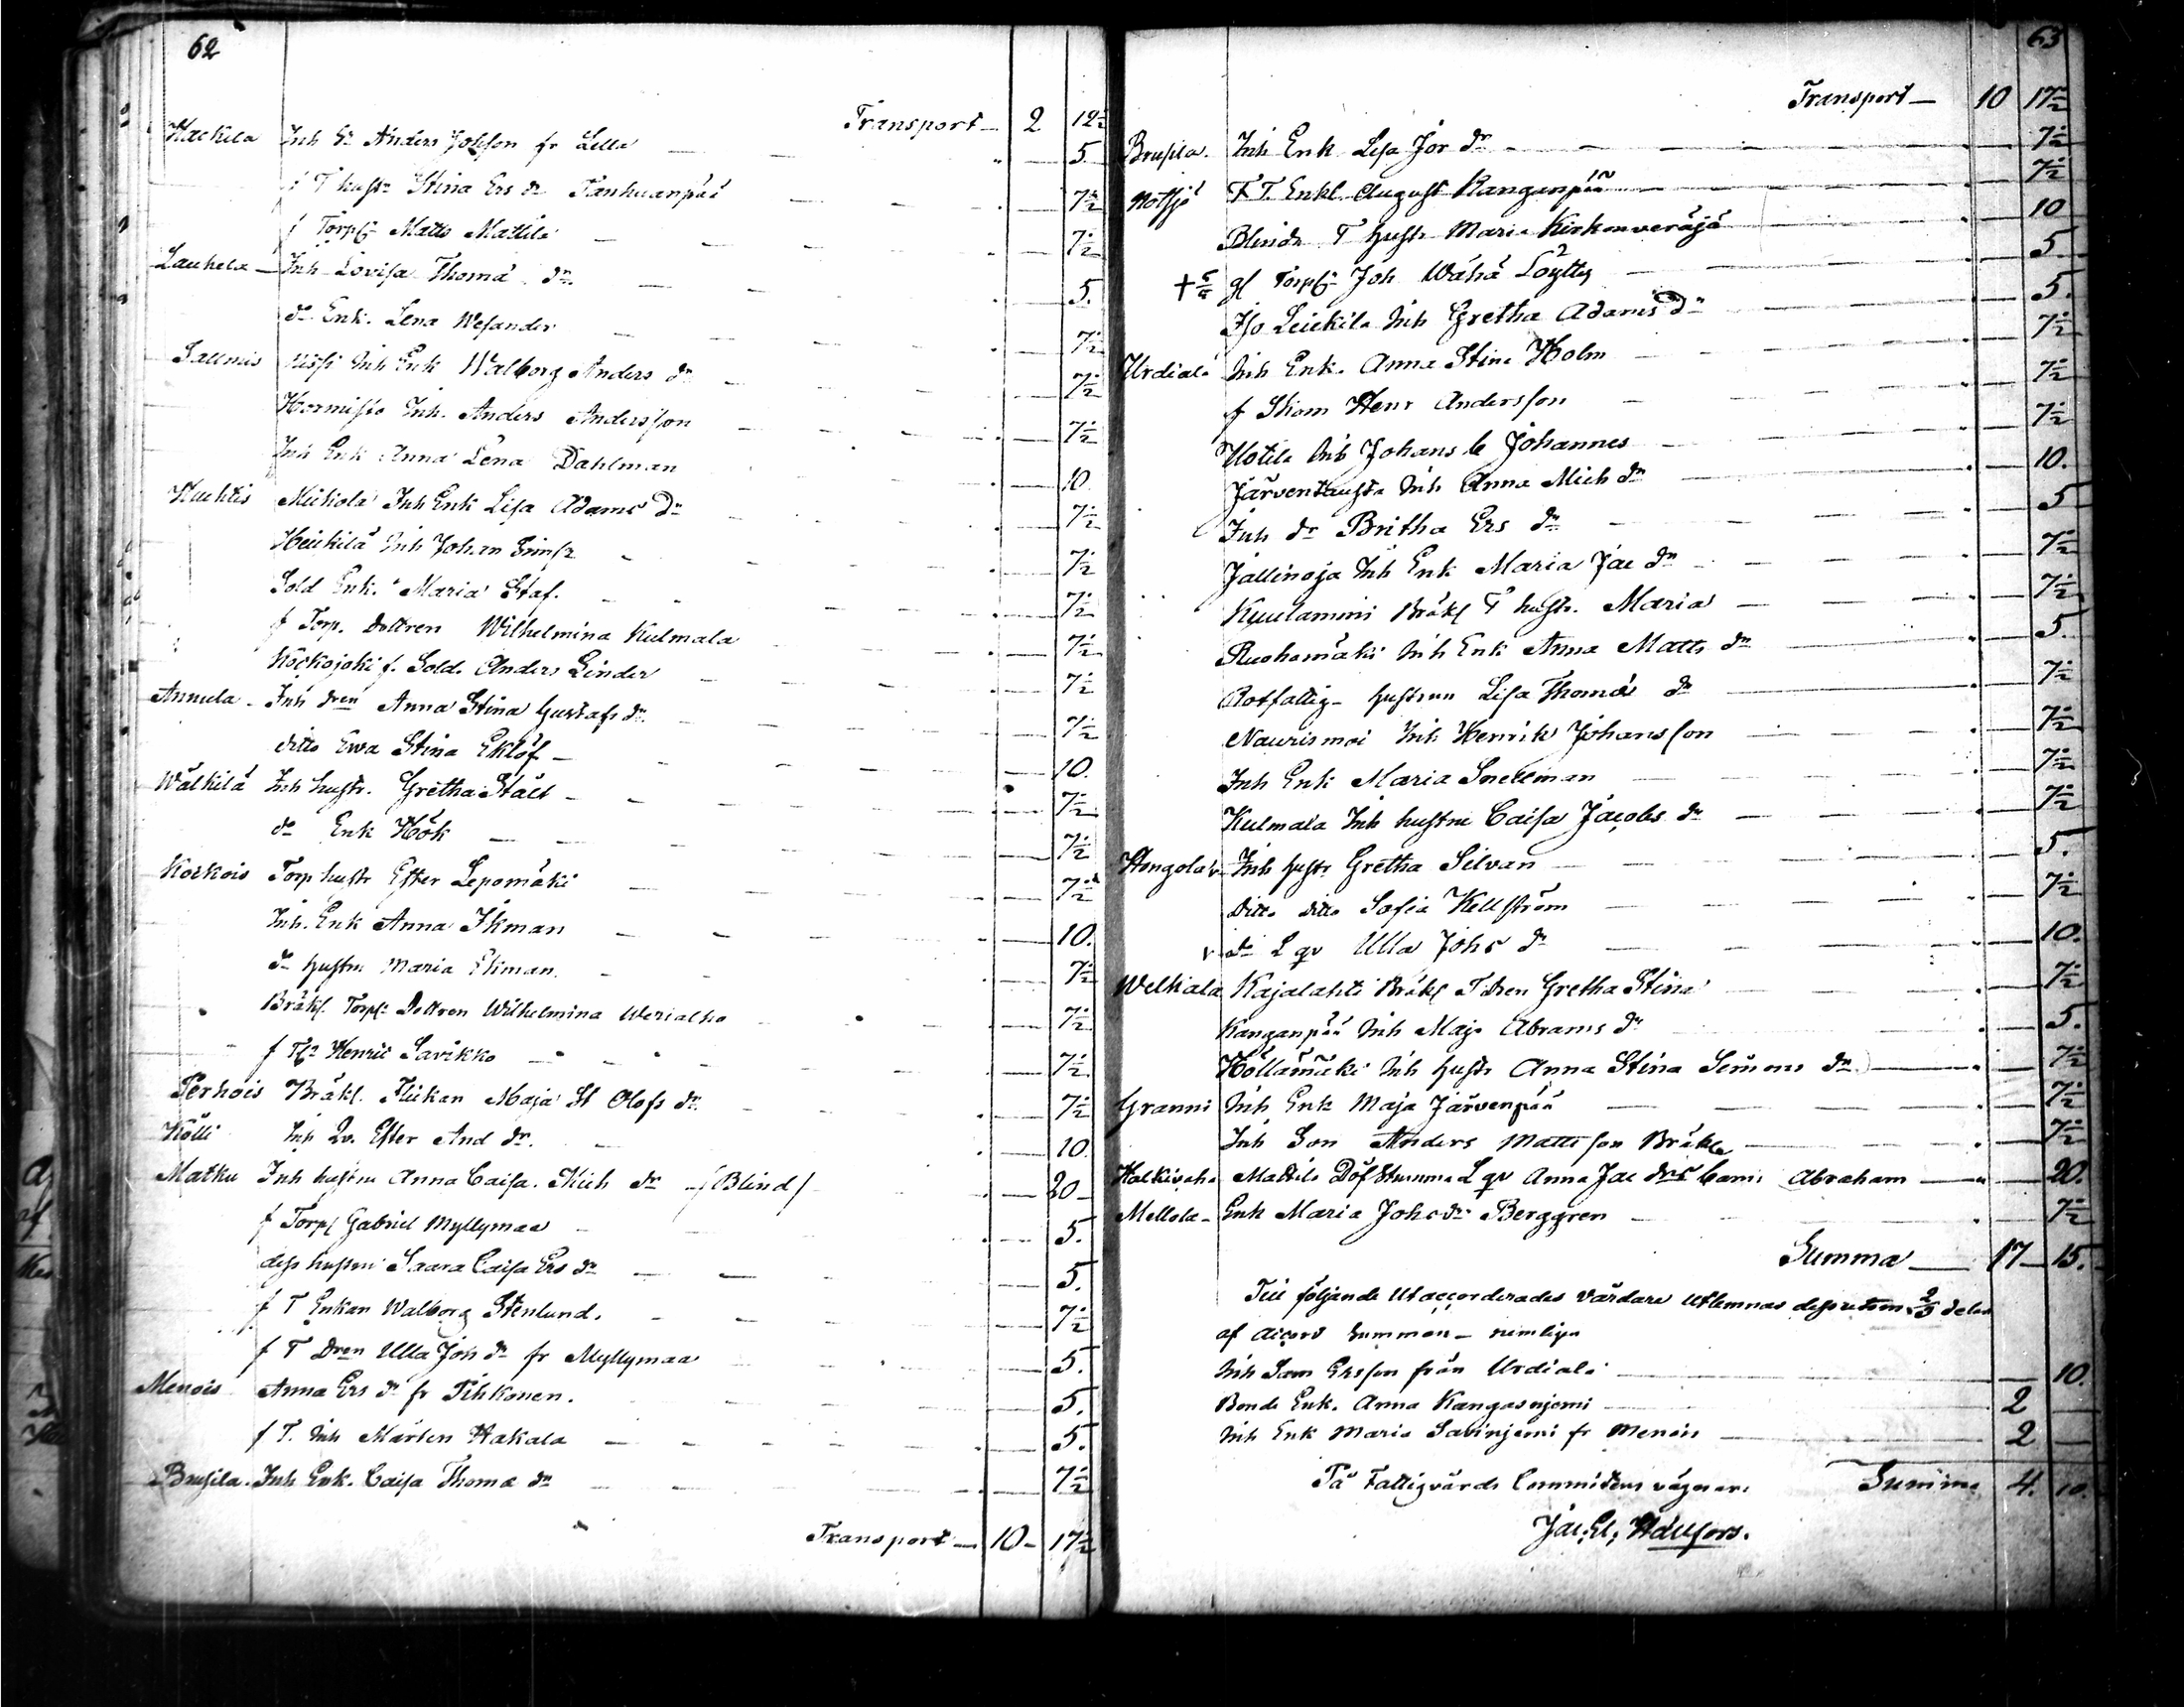 62
Transport — 2 12½
Hackila Inh Sn Anders Johsson fr Lilla 5
f T hustr Stina Ers dr Tanhuanpää 7½
f Torp. Matts Mattila 7½
Laukela Inh Lovisa Thoma dr 5.
do Enk. Lena Wesander 7½
Salmis Inh Enk Walborg Anders dr 7½
Hormisto Inh. Anders Andersson 7½
Inh Enk Anna Lena Dahlman 10.
Huhtis Mickola Inh Enk Lisa Adams dr 7½
Heickilä Inh Johan 7½
Sold Enk. Maria Staf. 7½
f Torp. Dottren Wilhelmina Kulmala 7½
Köckojoki f. Sold. Anders Linder 7½
Annula Inh dren Anna Stina Gustafs dr 7½
ditto Ewa Stina Eklöf 10.
Wälkilä Inh hustr. Gretha Stält 7½
do Enk Hök 7½
Korkois Torp hustr Ester Lepomäki 7½
Inh. Enk Anna Ikman 10.
do hustru Maria Ekman 7½
Bräkl. Torp Dottren Wilhelmina 7½
f Henric Savikko 7½
Perhois Bräkl. Flickan Maja St Olofs dr 7½
Kölli Inh Qv. Ester And dr. 10
Matku Inh hustru Anna Caisa Mich dr /Blind/ 20
f Torp Gabriel Myllymaa 5.
dess hustru Saara Caisa Ers dr 5.
f T Enkan Walborg Stenlund. 7½
f T Dren Ulla Joh dr fr Myllymaa 5.
Menois Anna Ers dr fr Pihkonen. 5.
f T. Inh Mårten Hakala 5.
Brusila. Inh Enk. Caisa Thoma dr 7½
Transport — 10 — 17½
63
Transport — 10 17½
Brusila. Inh Enk Lisa Jör dr 7½
Notsjö F T. Enkl August Kanganpää 7½
Blinda T hustr Maria Kirkonveräjä 10
gl Torp Joh Wähä Löytty 5
Iso Leickila Inh Gretha Adams dr 5.
Urdiala Inh Enk. Anna Stina Holm 7½
f Skom Henr Andersson 7½
Uotila Inh Johans b Johannes 7½
Järventausta Inh Anna Mich dr 10.
Inh dr Britha Ers dr 5
Jallinoja Inh Enk Maria Jac dr 7½
Kuulammi Bräkl T hustr. Maria 7½
Ruohomäki Inh Enk Anna Matts dr 5.
Rotfattig hustrun Lisa Thoma dr 7½
Naurismai Inh Henrik Johansson 7½
Inh Enk Maria Snellman 7½
Kulmala Inh hustru Caisa Jacobs dr 7½
Hongola Inh hustr Gretha Silvan 5.
Ditto ditto Sofia Kellström 7½
do L qv Ulla Johs dr 10.
Welkiala Kajalahti Bräkl T dren Gretha Stina 7½
Kanganpää Inh Maja Abrams dr 5.
Höllämäki Inh hustr Anna Stina Simons dr 7½
Granni Inh Enk Maja Järvenpää 7½
Inh Son Anders Mattsson Bräkl 7½
Halkivaha Mattila Döf Stumma L qv Anna Jac drs barn Abraham 20.
Mellola Enk Maria Johs dr Berggren 7½
Summa — 17 — 15.
Till följande Utaccorderades Vårdare Utlemnas dessutom 2/3 delen
af accord Summan — nemligen
Inh Sam Ersson från Urdiala 10.
Bonde Enk. Anna Kangasnjemi 2
Inh Enk Maria Savinjemi fr Menois 2
På Fattigvårds Committens vägnar. Summa 4. 10.
Jac. Gl. Hällfors.